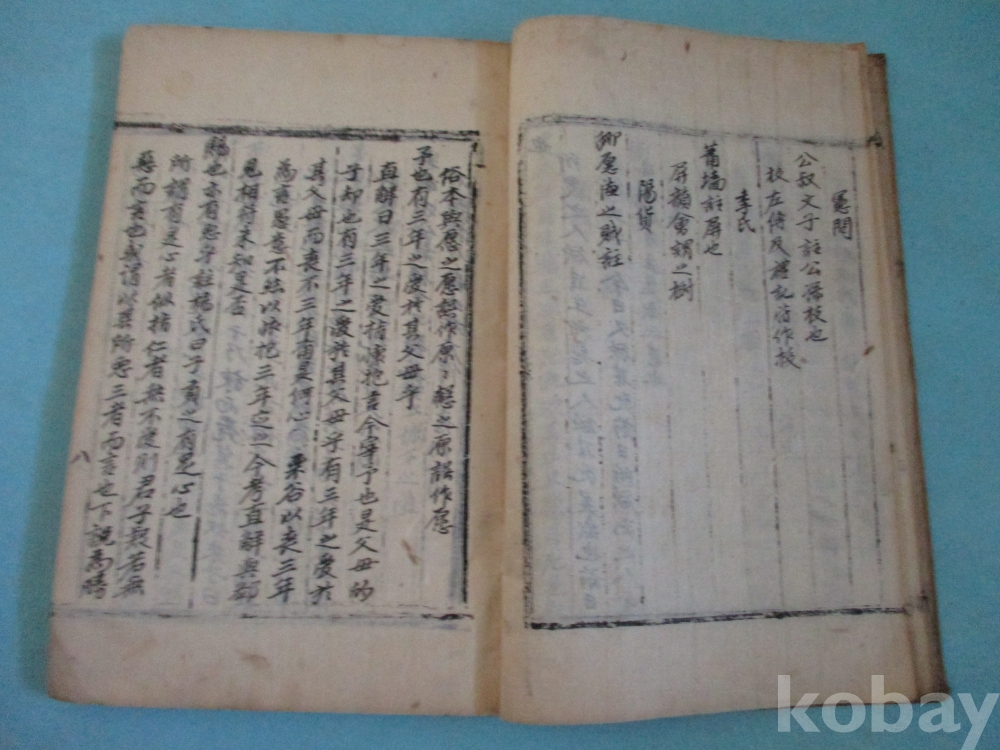 憲問
公叔文子註公孫枝也
枝左傳及禮記皆作拔
季氏
蕭墻註屏也
屏稲會謂之樹
陽貨
鄉愿德之賊註
俗本與愿之愿誤作原原慤之原誤作愿
予也有三年之愛於其父母乎
直解曰三年之愛指懷抱言今宰予也是父母的
子却也有三年之愛於其父母乎有三年之愛於
其父母而喪不三年當是何心 栗谷以喪三年
為言愚意不然以懷抱三年之今考直解與鄙
見相符未知是否
賜也亦有惡乎註楊氏曰子貢之有是心也
所謂有是心者似指仁者無不愛則君子疑若無
惡而言也或謂以其所惡三者而言也下說為勝
八
kobay